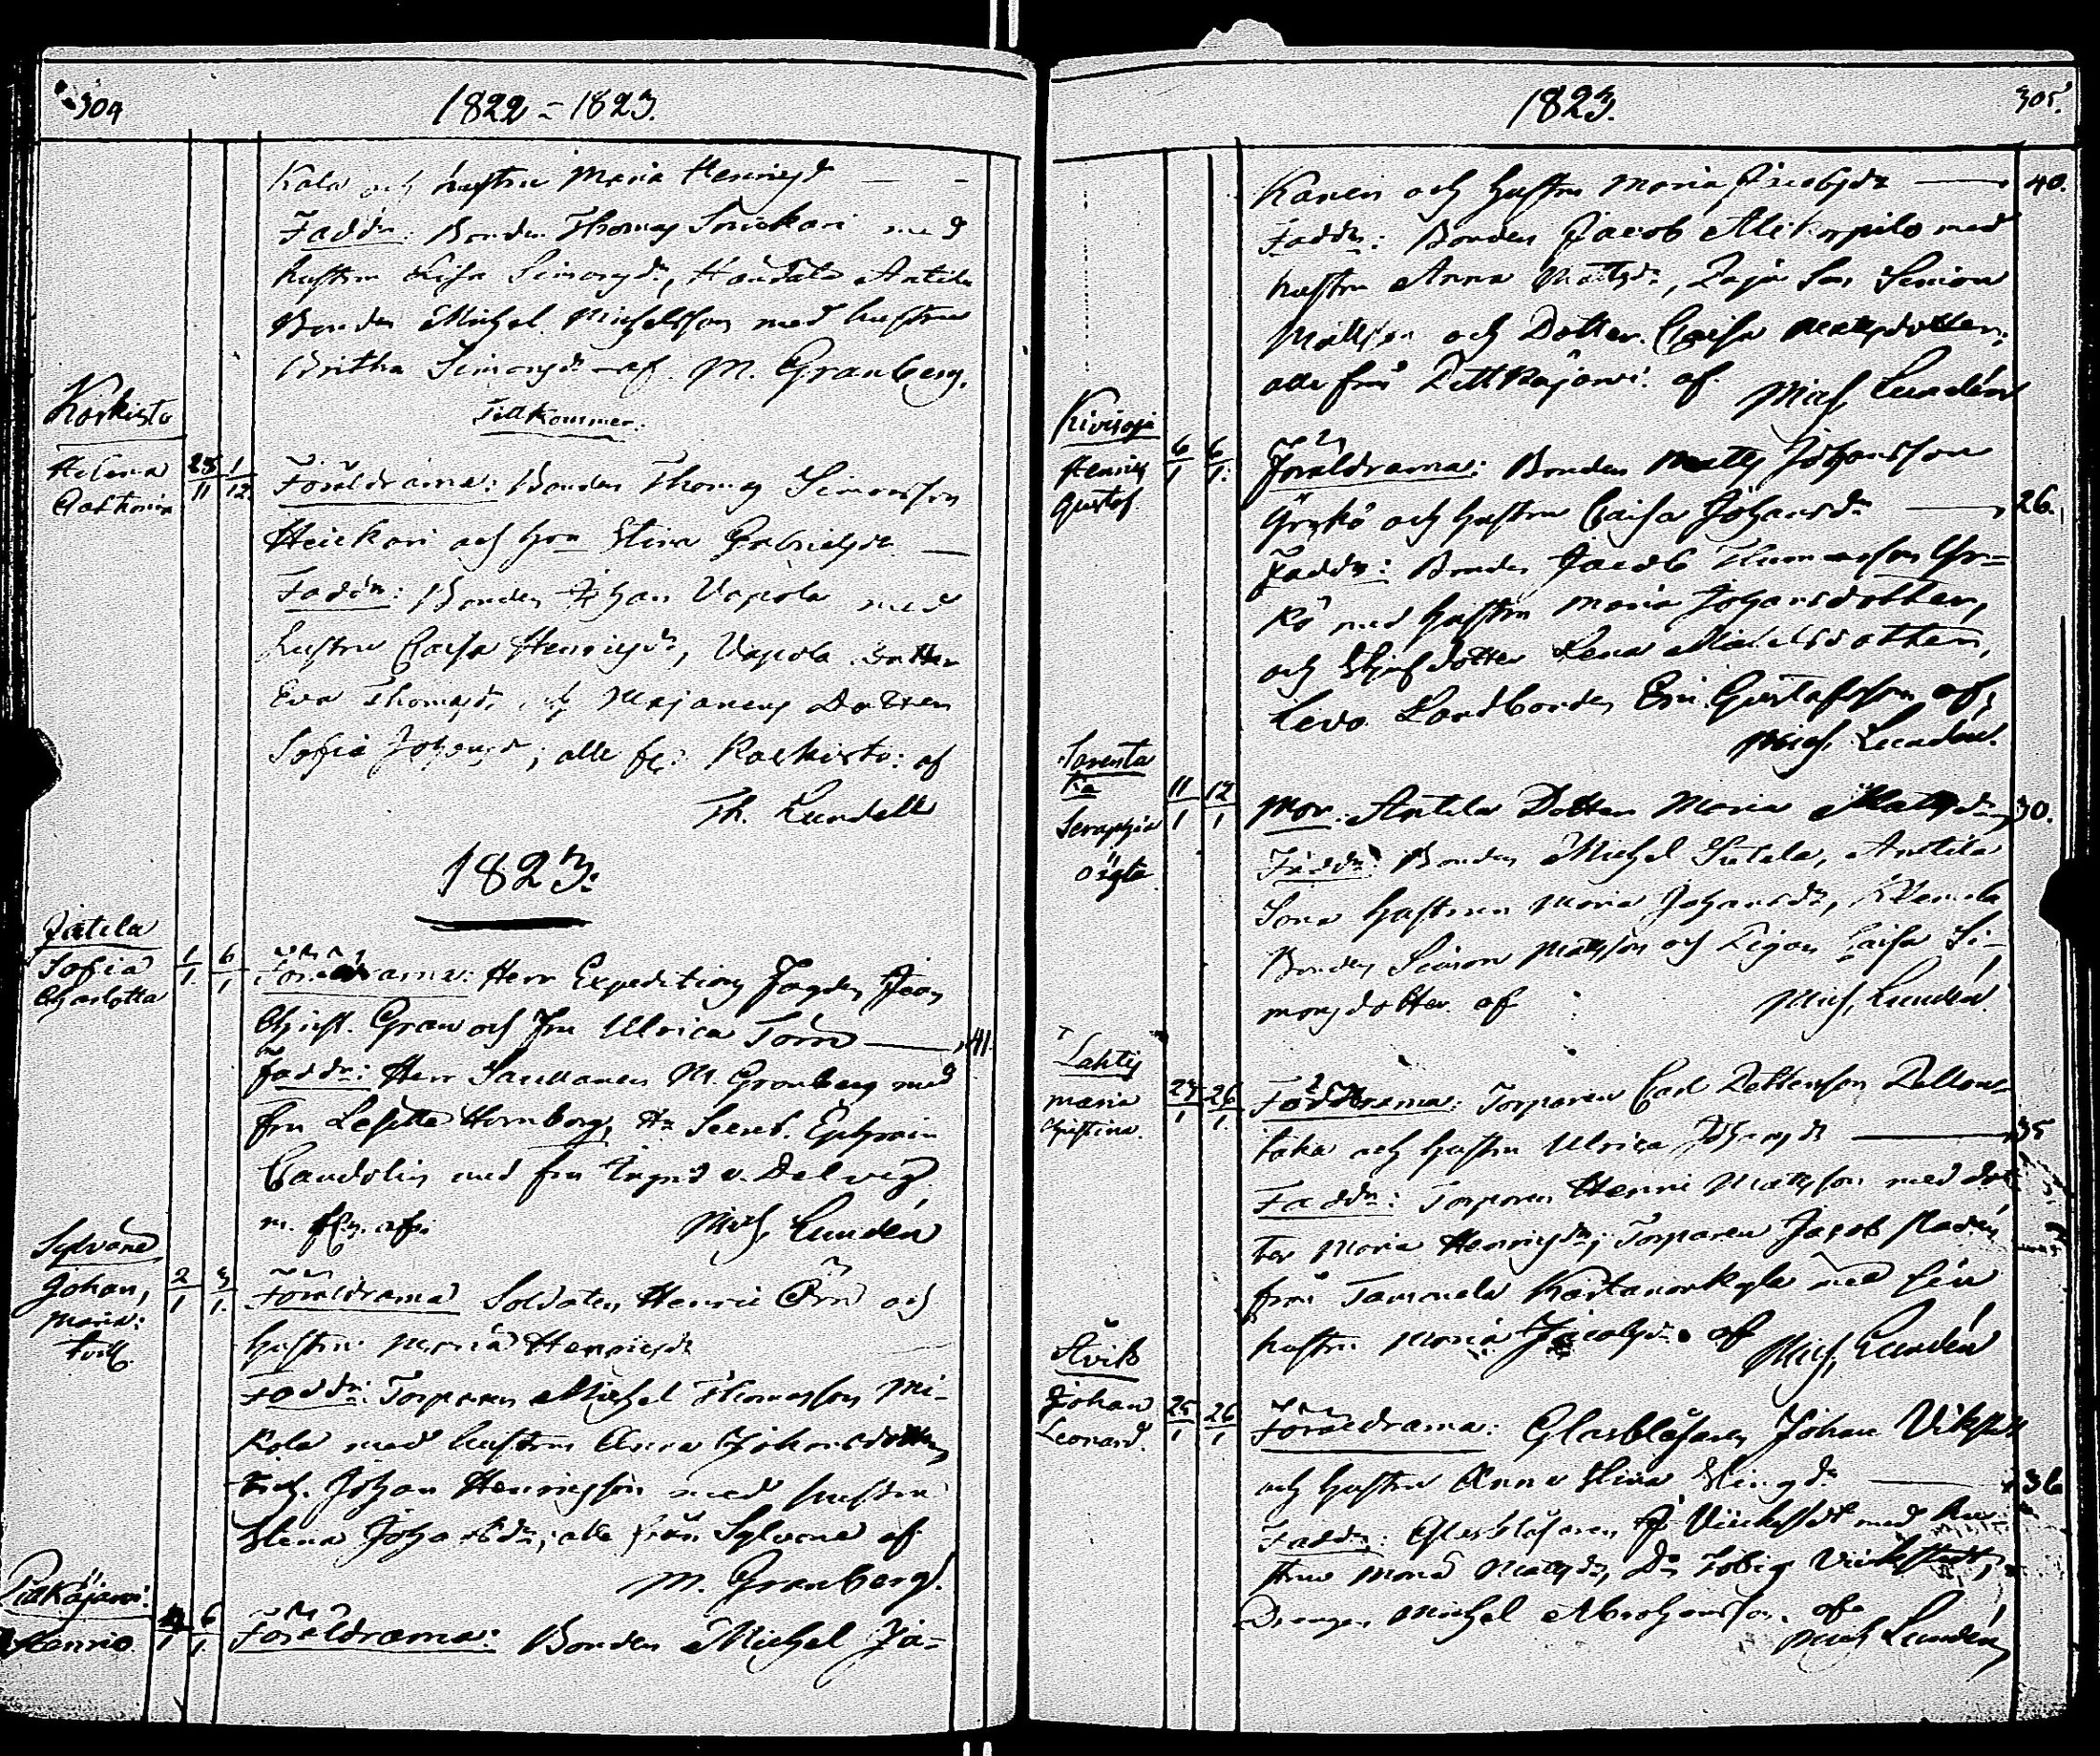 304
1822 – 1823.
Kala och hustru Maria Henricsdr
Faddr: Bonden Thomas Snickari med
hustru Lisa Simonsdr, Antila
Bonden Michel Michelsson med hustru
Britha Simonsdr af M. Granberg.
Tillkommer.
Koskisto
Helena
Cathrina
28/11 1/12
Föräldrarna: Bonden Thomas Simonsson
Heickari och hru Stina Gabrielsdr
Faddr: Bonden Johan Uapola med
hustru Caisa Henricsdr, Uapola Dotter
Eva Thomasdr, och Dotter
Sofia Johansdr; alle fr: Koskisto: af
Th. Lundell
1823:
Jutila
Sofia
Charlotta
1/1 6/1
Föräldrarna: Herr Expeditions Fogden
Christ. Gran och Fru Ulrica Torn 41.
Faddr: Herr M. Granberg med
fru Lisette Hornborg, Hr Secret. Ephraim
med fru Ingrid v. Delwig
m. fl. af. Mich, Lundén
Sylvänä
Johan,
Maria:
tvill.
2/1 3/1
Föräldrarna Soldaten Henric Örn och
hustru Maria Henricsdr
Faddr: Torparen Michel Thomasson Mi-
kola med hustru Anna Johansdotter,
Johan Henricsson med hustru
Stena Johansdr; alle från Sylvänä af
M. Granberg.
Pitkäjärvi:
Henric.
4/1 6/1
Föräldrarna: Bonden Michel Ja-
1823.
305.
kanen och hustru Maria Jacobsdr 40.
Faddr: Bonden Jacob Alikorpilo med
hustru Anna Mattsdr, Son Simon
Mattson och Dotter Caisa Mattsdotter;
alle från Pittkäjärvi: af Mich, Lundén
Kivisoja
Henric
Gustaf.
6/1 6/1.
Föräldrarna: Bonden Matts Johansson
Yrkö och hustru Caisa Johansdr 26.
Faddr: Bonden Jacob Thomasson Yr-
kö med hustru Maria Johansdotter,
och Dotter Lena Michelsdotter,
Levo Landbonden Eric Gustafsson af
Mich, Lundén.
Torenta
Ka
Seraphia
oägta
11/1 12/1
Mor. Antila Dotter Maria Mattsdr, 30.
Faddr: Bonden Michel Sutela, Antila
Sona hustrun Maria Johansdr,
Bonden Simon Mattsson och Pigan Caisa Si-
monsdotter. af Mich, Lundén.
Lahtis
Maria
Christina.
24/1 26/1
Föräldrarna: Torparen Carl
och hustru Ulrica Johansdr 35
Faddr: Torparen Henric Mattsson med dot-
ter Maria Henricsdr; Torparen Jacob
från Tammela Kartanonkylä med sin
hustru Maria Jacobsdr. af Mich, Lundén
Åvik
Johan
Leonard.
25/1 26/1
Föräldrarna: Glasblåsaren Johan Vikstedt
och hustru Anna Stina 36
Faddr: Glasblåsaren J Vickstedt med hu-
stru Maria Mattsdr, Dr Tobias Vickstedt,
Drengen Michel Abrahamsson. af
Mich Lundén